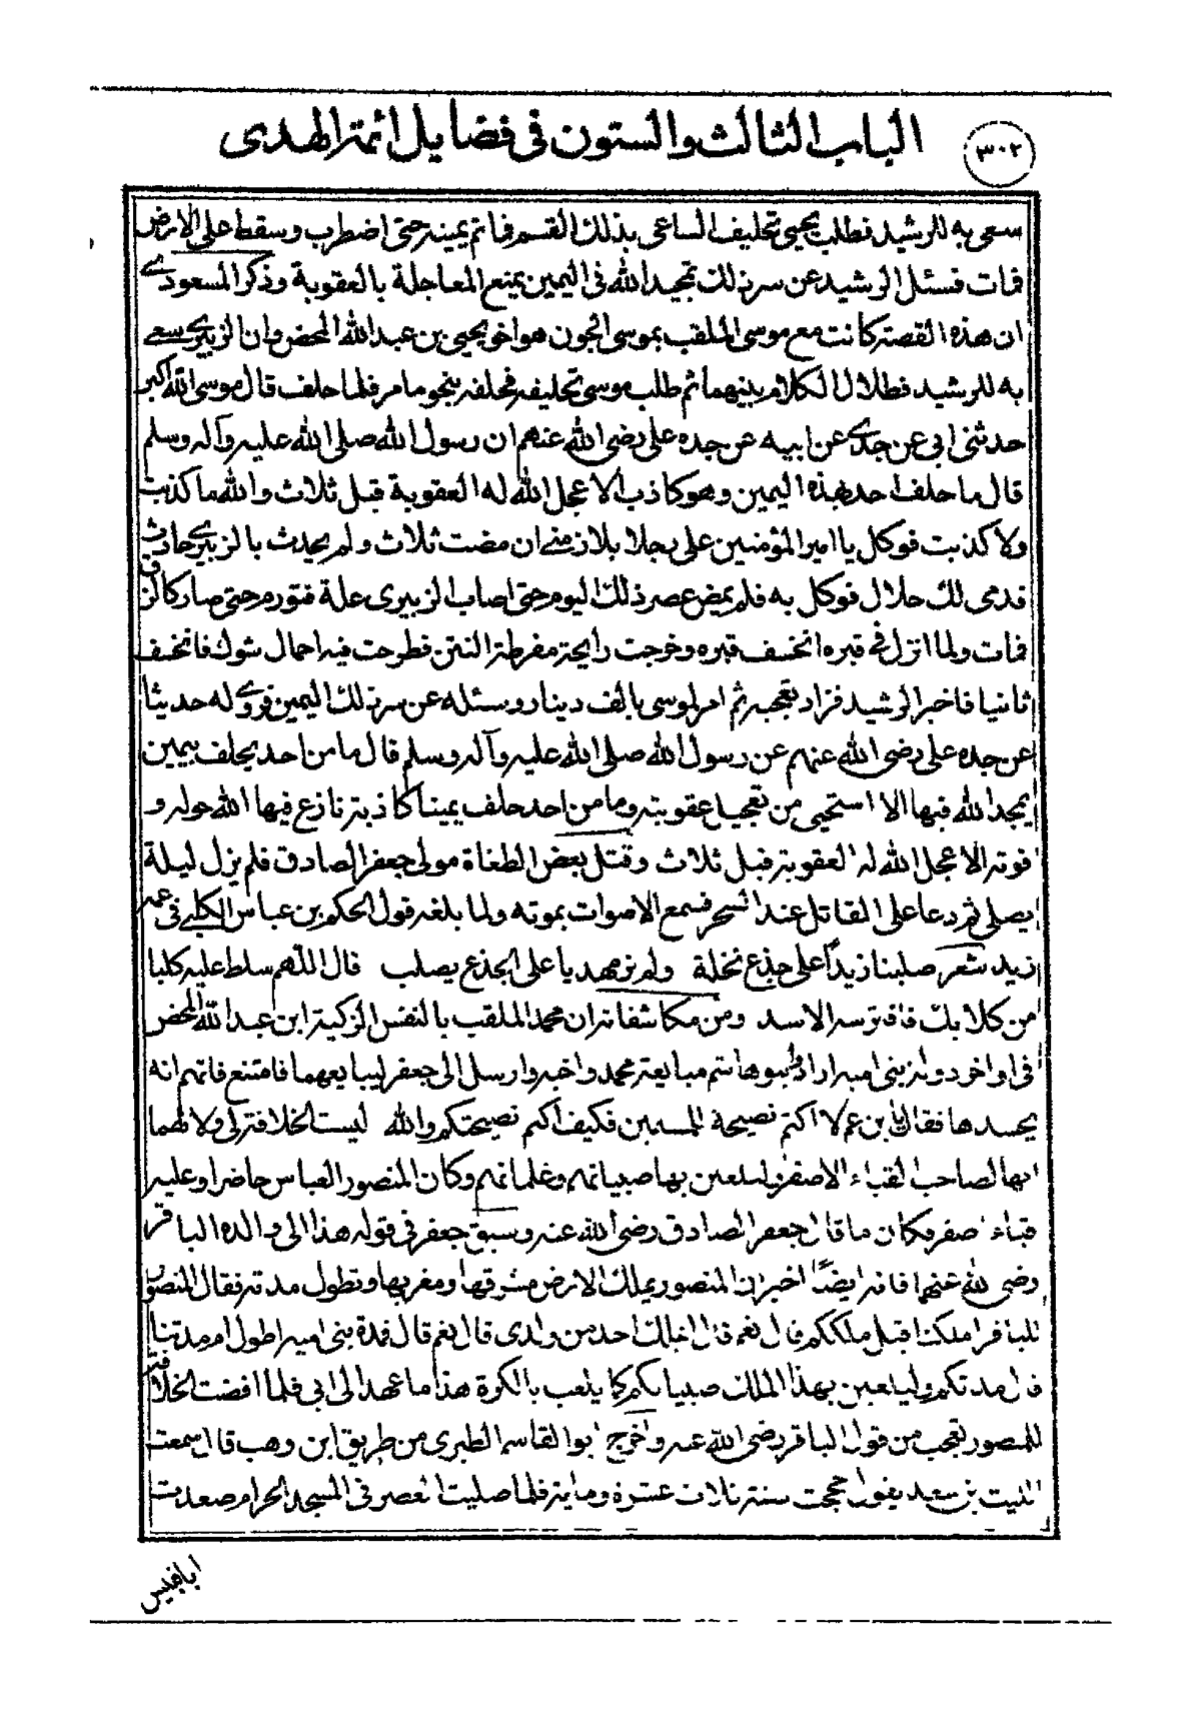 ٣٠٢
الباب الثالث والستون في فضايل ائمة الهدى
سعى به للرشيد فطلب يحيى تحليف الساعى بذلك القسم فاتم يمينه حتى اضطرب وسقط على الارض
فمات فسئل الرشيد عن سر ذلك تمجيد الله فى اليمين يمنع المعاجلة بالعقوبة وذكر المسعودى
ان هذه القصة كانت مع موسى الملقب بموسى الجون هو اخو يحيى بن عبد الله المحض وان الزبيرى سعى
به للرشيد فطلال الكلام بينهما ثم طلب موسى تحليفه فحلفه بنحو ما مر فلما حلف قال موسى الله اكبر
حدثنى ابى عن جدى عن ابيه عن جده على رضى الله عنهم ان رسول الله صلى الله عليه وآله وسلم
قال ما حلف احد بهذه اليمين وهو كاذب الا عجل الله له العقوبة قبل ثلاث والله ما كذبت
ولا كذبت فوكل يا امير المؤمنين على رجلا بلازمنى ان مضت ثلاث ولم يحدث بالزبيرى حادث
فدمى لك حلال فوكل به فلم يمض عصر ذلك اليوم حتى اصاب الزبيرى علة فتورم حتى صار كالزق
فمات ولما انزل فى قبره انخسف قبره وخرجت رايحة مفرطة النتن فطرحت فيه احمال شوك فانخسف
ثانيا فاخبر الرشيد فزاد تعجبه ثم امر لموسى بالف دينار وسئله عن سر ذلك اليمين فروى له حديثا
عن جده على رضى الله عنهم عن رسول الله صلى الله عليه وآله وسلم قال ما من احد يحلف بيمين
يمجد الله فيها الا استحيى من تعجيل عقوبته وما من احد حلف يمينا كاذبة نازع فيها الله حوله و
قوته الا عجل الله له العقوبة قبل ثلاث وقتل بعض الطغاة مولى جعفر الصادق فلم يزل ليلة
يصلى ثم دعا على القاتل عند السحر فسمع الاصوات بموته ولما بلغه قول الحكم بن عباس الكلبى فى عمه
زيد شعر صلبنا زيداً على جذع نخلة ولم نر مهديا على الجذع يصلب قال اللهم سلط عليه كلبا
من كلابك فافترسه الاسد ومن مكاشفاته ان محمد الملقب بالنفس الزكية ابن عبد الله المحض
فى اواخر دولة بنى امية اراد بنوها شم مبايعة محمد واخيه وارسل الى جعفر ليبايعهما فامتنع فاتهم انه
يحسدها فقال يا بن عم لا اكتم نصيحة المسلمين فكيف اكتم نصيحتكم والله ليست الخلافة لى ولا لهما
انها لصاحب القباء الاصفر وليلعبن بها صبيانهم وغلمانهم وكان المنصور العباس حاضرا وعليه
قباء اصفر فكان ما قال جعفر الصادق رضى الله عنه وسبق جعفر فى قوله هذا الى والده الباقر
رضى الله عنهما فانه ايضاً اخبر ان المنصور يملك الارض مشرقها ومغربها وتطول مدته فقال المنصور
للباقر املكنا قبل ملككم قال نعم قال ايملك احد من ولدى قال نعم قال فمدة بنى امية اطول ام مدتنا
قال مدتكم وليلعبن بهذا الملك صبيانكم كما يلعب بالكرة هذا ما عهد الى ابى فلما افضت الخلافة
للمنصور تعجب من قول الباقر رضى الله عنه واخرج ابو القاسم الطبرى من طريق ابن وهب قال سمعت
الليث بن سعد يقول حججت سنة ثلاث عشرة وماية فلما صليت العصر فى المسجد الحرام صعدت
ابا قبيس